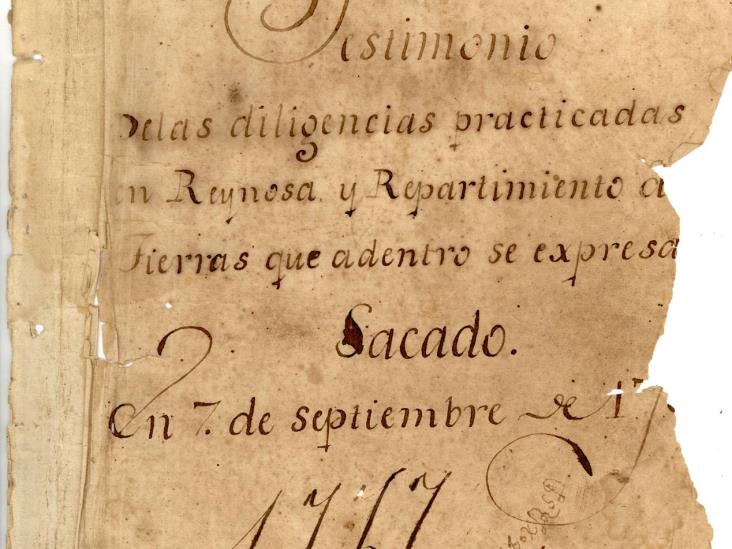 Testimonio
Delas diligencias practicadas
en Reynosa y Repartimiento d
Tierras que adentro se expresa
Sacado.
En 7. de septiembre de 17
1767